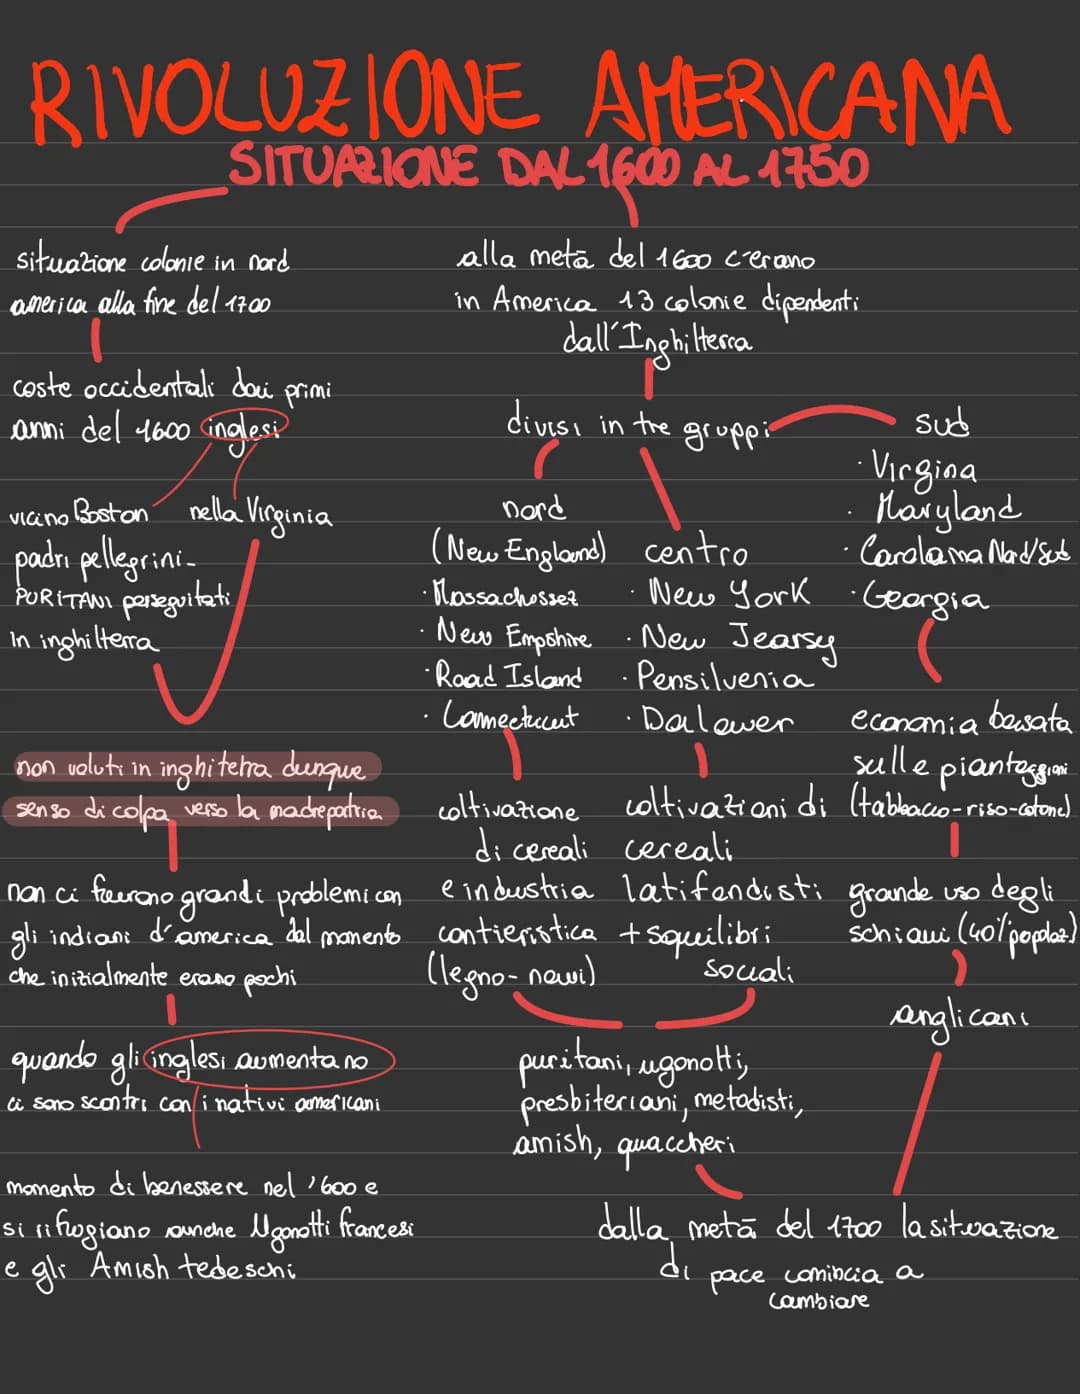 RIVOLUZIONE AMERICANA
SITUAZIONE DAL 1600 AL 1750
situazione colonie in nord
america alla fine del 1700
coste occidentali dai primi
anni del 1600 inglesi
vicino Boston
padri pellegrini-
PURITANI perseguitati
in inghilterra
nella Virginia
non voluti in inghiltetra dunque
senso di colpa verso la madrepatria
non ci furono grandi problemi con
gli indiani d'america dal momento
che inizialmente erano pochi
quando gli inglesi aumentano
ci sono scontri con i nativi americani
momento di benessere nel '600 e
si rifugiano anche Ugonotti francesi
e gli Amish tedeschi
alla metà del 1600 c'erano
in America 13 colonie dipendenti
dall'Inghilterra
divisi in tre gruppi
nord
(New England)
· Massachossez
· New Empshire
· Road Island
· Connecticut
coltivazione
di cereali
e industria
cantieristica
(legno-navi)
centro
· New York
· New Jearsy
· Pensilvenia
· Dalawer
coltivazioni di
cereali
latifondisti
+ squilibri
sociali
puritani, ugonotti,
presbiteriani, metodisti,
amish, quaccheri
sud
· Virgina
· Maryland
· Carolaina Nord/Sud
· Georgia
economia basata
sulle piantaggioni
(tabbacco-riso-cotone)
grande uso degli
schiavi (40% popolaz.)
anglicani
dalla metà del 1700 la situazione
di pace comincia a
cambiare